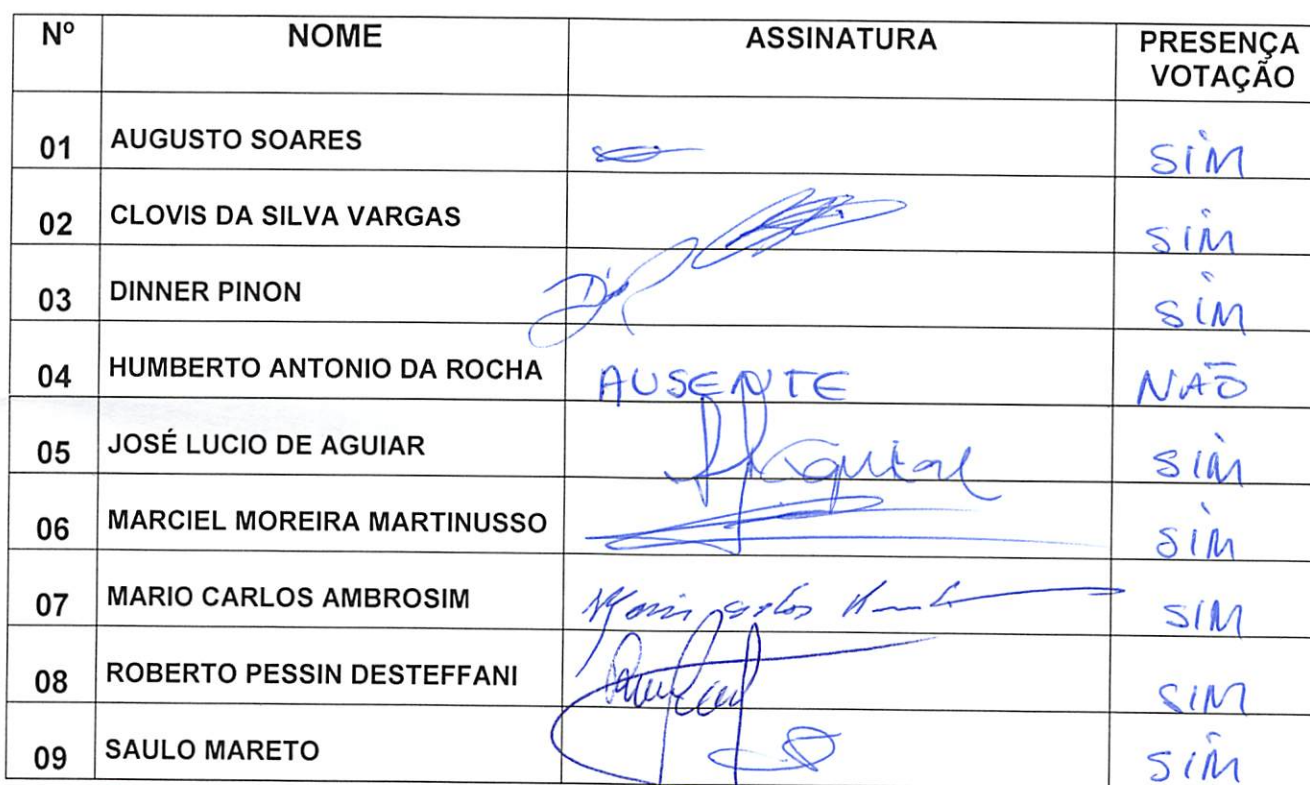 Nº NOME ASSINATURA PRESENÇA
VOTAÇÃO
01 AUGUSTO SOARES SIM
02 CLOVIS DA SILVA VARGAS SIM
03 DINNER PINON SIM
04 HUMBERTO ANTONIO DA ROCHA AUSENTE NÃO
05 JOSÉ LUCIO DE AGUIAR Aguiar SIM
06 MARCIEL MOREIRA MARTINUSSO SIM
07 MARIO CARLOS AMBROSIM Mario Carlos SIM
08 ROBERTO PESSIN DESTEFFANI SIM
09 SAULO MARETO SIM